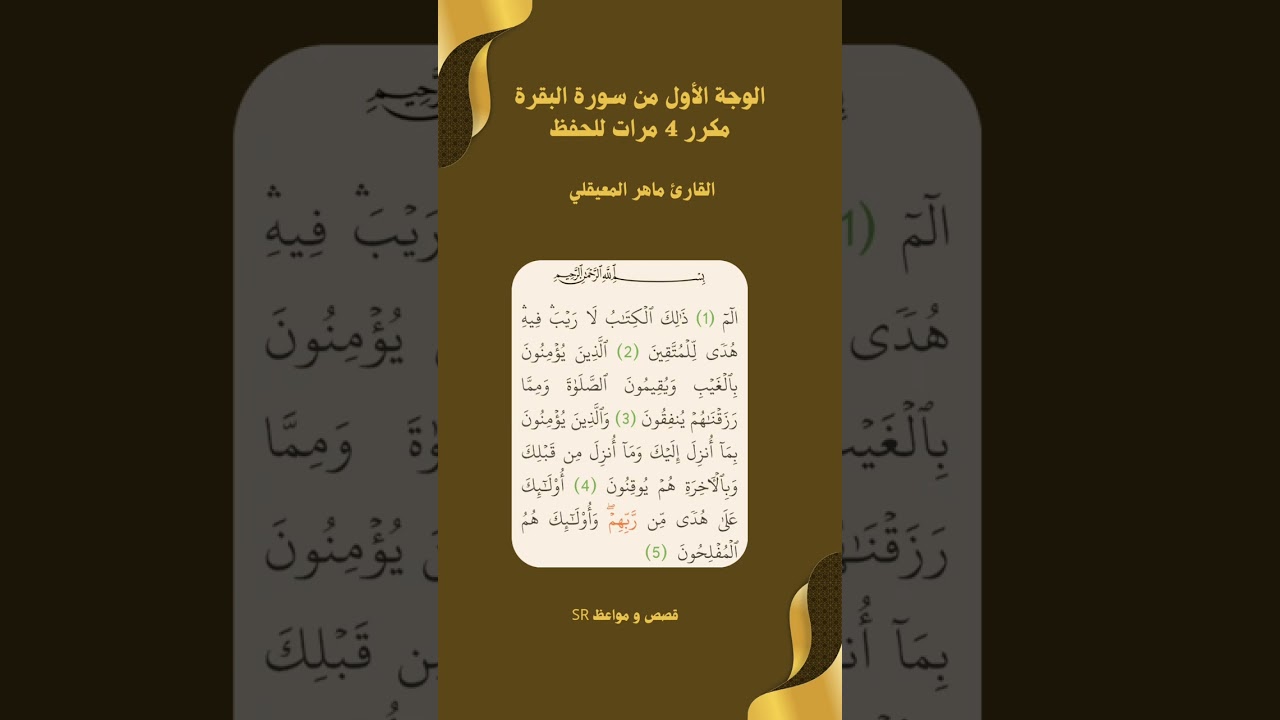 الوجة الأول من سورة البقرة
مكرر 4 مرات للحفظ
القارئ ماهر المعيقلي
بِسْمِ اللَّهِ الرَّحْمَٰنِ الرَّحِيمِ
الٓمٓ (1) ذَٰلِكَ ٱلْكِتَٰبُ لَا رَيْبَۛ فِيهِۛ
هُدًى لِّلْمُتَّقِينَ (2) ٱلَّذِينَ يُؤْمِنُونَ
بِٱلْغَيْبِ وَيُقِيمُونَ ٱلصَّلَوٰةَ وَمِمَّا
رَزَقْنَٰهُمْ يُنفِقُونَ (3) وَٱلَّذِينَ يُؤْمِنُونَ
بِمَآ أُنزِلَ إِلَيْكَ وَمَآ أُنزِلَ مِن قَبْلِكَ
وَبِٱلْأَخِرَةِ هُمْ يُوقِنُونَ (4) أُو۟لَٰٓئِكَ
عَلَىٰ هُدًى مِّن رَّبِّهِمْۖ وَأُو۟لَٰٓئِكَ هُمُ
ٱلْمُفْلِحُونَ (5)
قصص و مواعظ SR